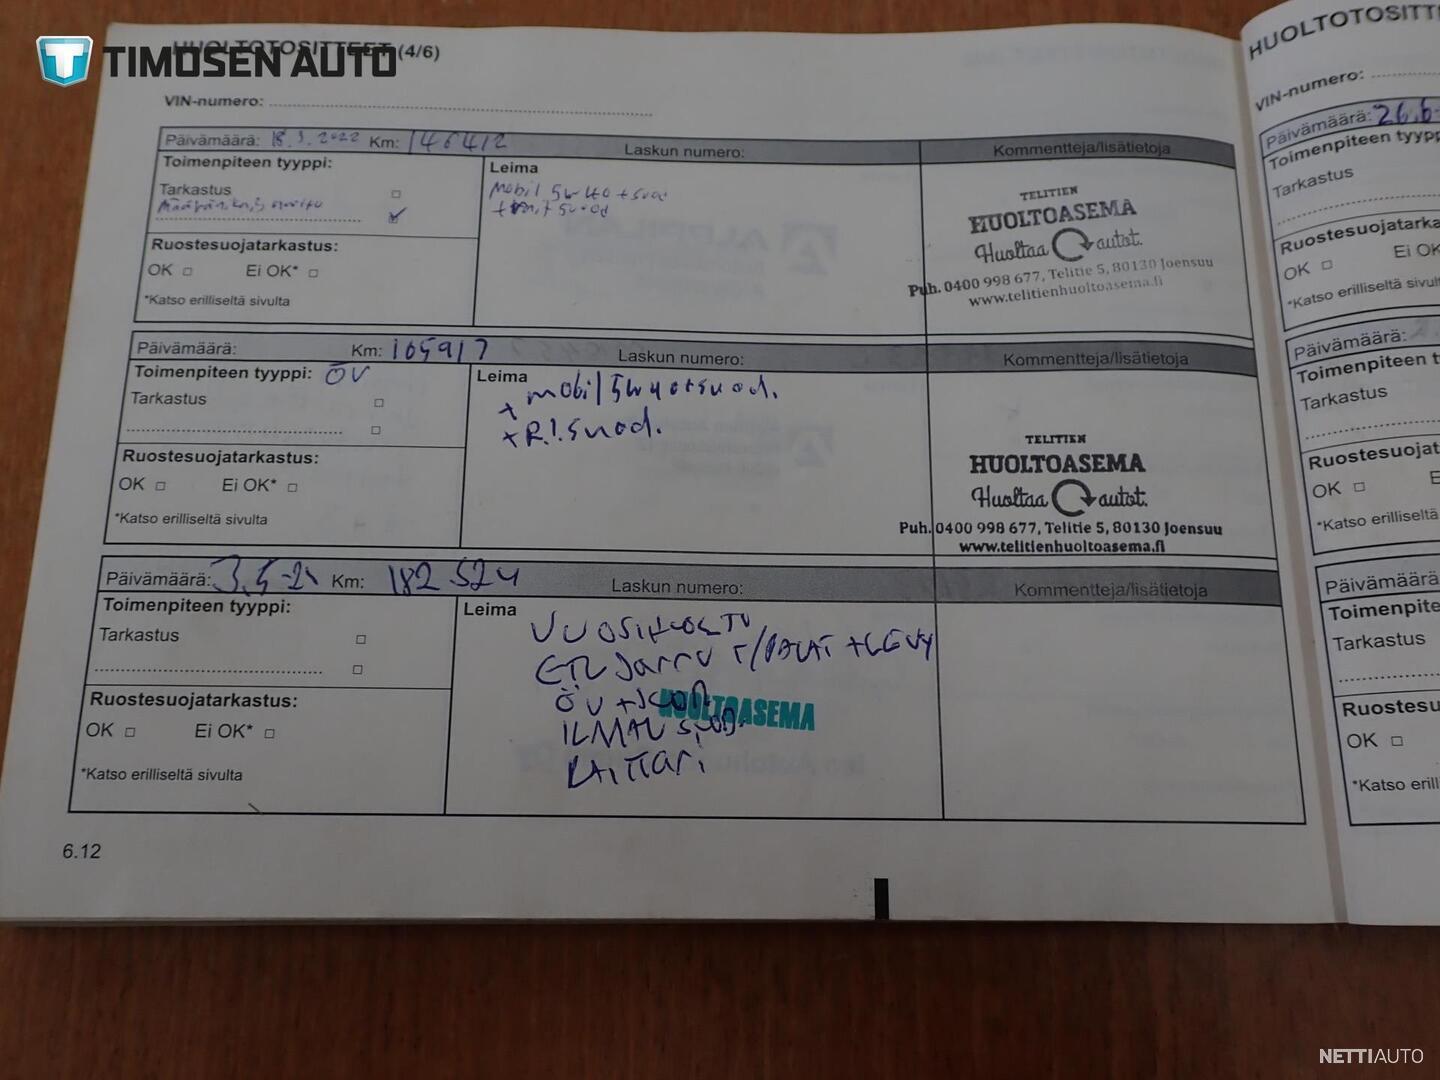 TIMOSEN AUTO
HUOLTOTOSITTEET (4/6)
VIN-numero:
Päivämäärä: 18.3.2022 Km: 146412 Laskun numero: Kommentteja/lisätietoja
Toimenpiteen tyyppi:
Leima
Tarkastus
Mobil 5w40 + suod
Ruostesuojatarkastus:
OK Ei OK*
*Katso erilliseltä sivulta
TELITIEN
HUOLTOASEMA
Huoltaa autot.
Puh. 0400 998 677, Telitie 5, 80130 Joensuu
www.telitienhuoltoasema.fi
Päivämäärä: Km: 165917 Laskun numero: Kommentteja/lisätietoja
Toimenpiteen tyyppi: ÖV
Leima
Tarkastus
mobil 5w40+suod.
+ R.I. suod.
Ruostesuojatarkastus:
OK Ei OK*
*Katso erilliseltä sivulta
TELITIEN
HUOLTOASEMA
Huoltaa autot.
Puh. 0400 998 677, Telitie 5, 80130 Joensuu
www.telitienhuoltoasema.fi
Päivämäärä: Km: 182524 Laskun numero: Kommentteja/lisätietoja
Toimenpiteen tyyppi:
Leima
Tarkastus
VUOSIHUOLTO
ETU JARRU PALAT + LEVY
ÖV + SUOD.
HUOLTOASEMA
ILMAN SUOD.
Ruostesuojatarkastus:
OK Ei OK*
*Katso erilliseltä sivulta
6.12
HUOLTOTOSITT
VIN-numero:
Päivämäärä: 26.6
Toimenpiteen typp
Tarkastus
Ruostesuojatarka
OK Ei OK
*Katso erilliseltä sivulta
Päivämäärä:
Toimenpiteen t
Tarkastus
Ruostesuojat
OK E
*Katso erilliseltä
Päivämäärä
Toimenpite
Tarkastus
Ruostesu
OK
*Katso erill
NETTIAUTO